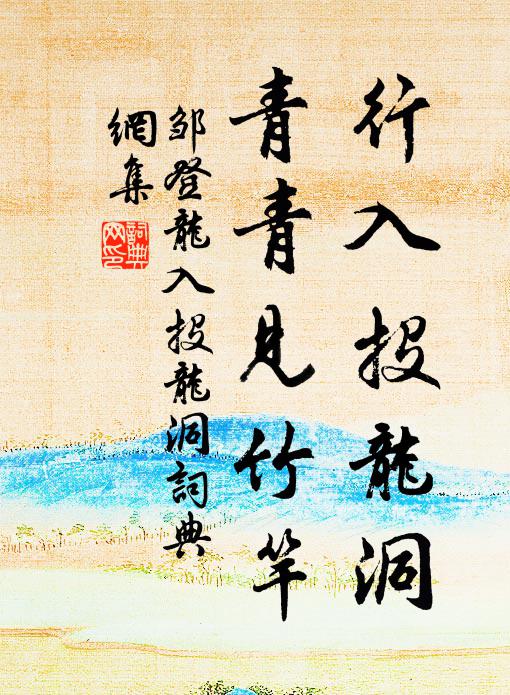 行入投龍洞
青青見竹竿
邹登龍入投龍洞詞典
網集
詞典
网印